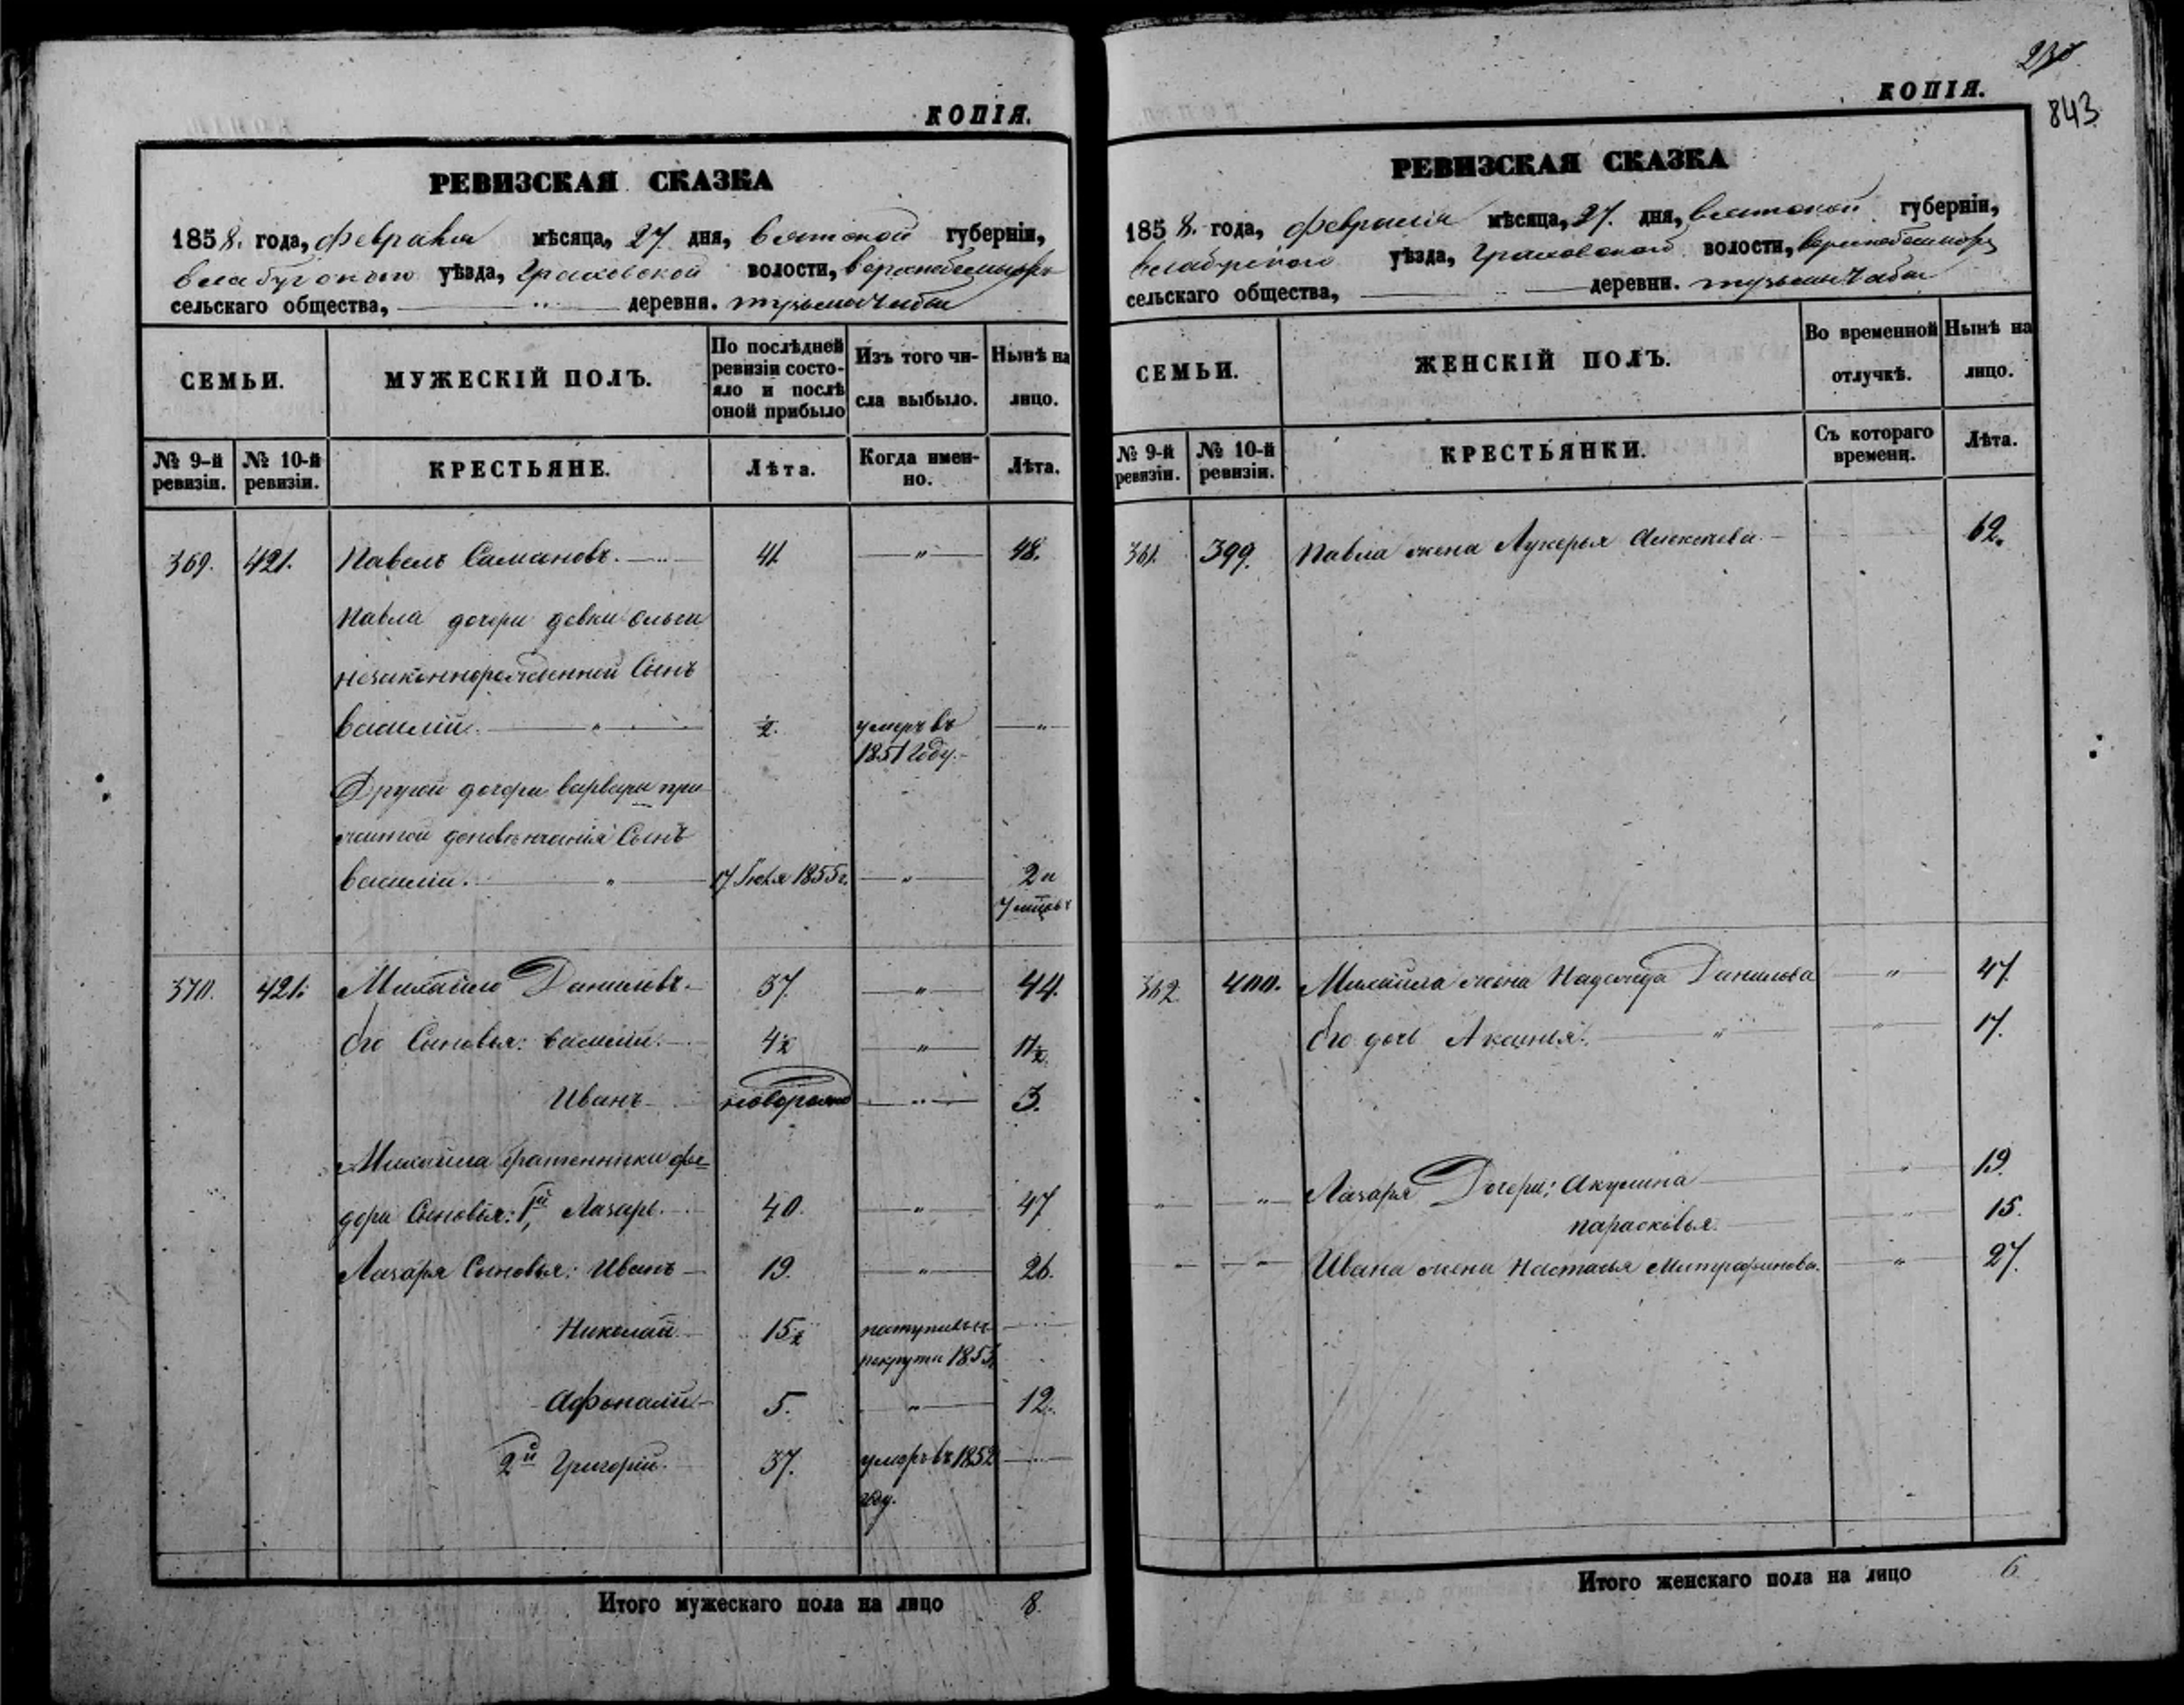 КОПІЯ.
РЕВИЗСКАЯ СКАЗКА
1858. года, февраля мѣсяца, 27. дня, вятской губерніи,
елабугскаго уѣзда, Граховской волости,
сельскаго общества, — " — деревни.
СЕМЬИ.
МУЖЕСКІЙ ПОЛЪ.
По послѣдней ревизіи состояло и послѣ оной прибыло
Изъ того числа выбыло.
Нынѣ на лицо.
№ 9-й ревизіи.
№ 10-й ревизіи.
КРЕСТЬЯНЕ.
Лѣта.
Когда именно.
Лѣта.
369. 421. Павелъ Самоновъ. 41. — " — 48.
Павла дочери девки Ольги
незаконнорожденной Сынъ
василій. — " — ½. умеръ въ — " —
1851 Году.
Другой дочери варвары при
житой Сынъ
василій. — " — 17 Іюля 1855 г. — " — 2 и
7 мцовъ
370. 421. Михайло Даниловъ. 37. — " — 44.
Его Сыновья: василій. 4½ — " — 11½.
Иванъ новорожд — " — 3.
Михайла братенники фе=
дора Сыновья: 1й, Лазарь. 40. — " — 47
Лазаря Сыновья: Иванъ 19. — " — 26.
Николай 15½ поступилъ в
рекруты 1853
Афонасій 5. — " — 12.
2й Григорій. 37. умеръ въ 1852 — " —
году.
Итого мужескаго пола на лицо 8.
230
КОПІЯ.
843
РЕВИЗСКАЯ СКАЗКА
1858. года, февраля мѣсяца, 27. дня, вятской губерніи,
елабугскаго уѣзда, Граховской волости,
сельскаго общества, — деревни.
СЕМЬИ.
ЖЕНСКІЙ ПОЛЪ.
Во временной отлучкѣ.
Нынѣ на лицо.
№ 9-й ревизіи.
№ 10-й ревизіи.
КРЕСТЬЯНКИ.
Съ котораго времени.
Лѣта.
361. 399. Павла жена Лукерья Алексеева 62.
362. 400. Михайла жена Надежда Данилова — " — 47.
Его дочь Аксинья. — " — — " — 17.
" " Лазаря Дочери: Акулина — " — 19.
парасковья — " — 15.
— " — — " — Ивана жена Настасья Митрафанова. — " — 27.
Итого женскаго пола на лицо 6